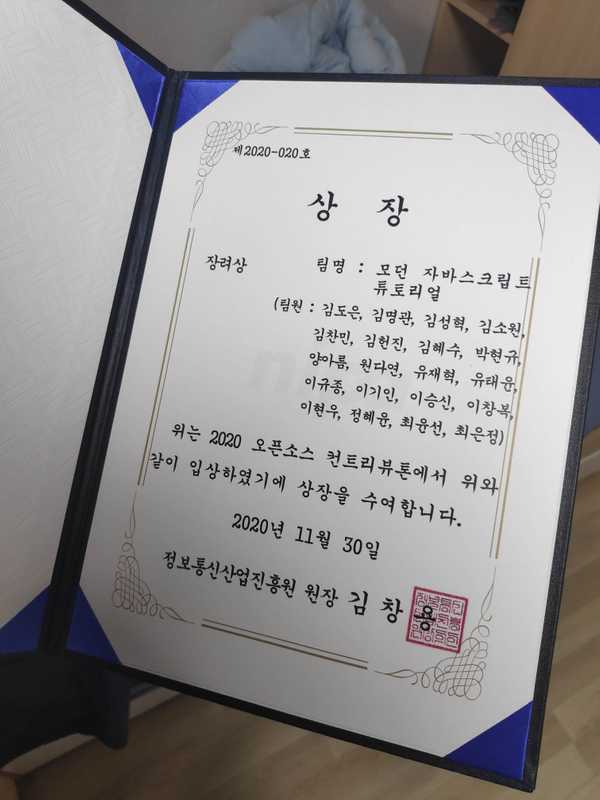 제2020-020호
상 장
장려상 팀명 : 모던 자바스크립트
튜토리얼
(팀원 : 김도은, 김명관, 김성혁, 김소원,
김찬민, 김헌진, 김혜수, 박현규,
양아름, 원다연, 유재혁, 유태윤,
이규종, 이기인, 이승신, 이창복,
이현우, 정혜윤, 최윤선, 최은정)
위는 2020 오픈소스 컨트리뷰톤에서 위와
같이 입상하였기에 상장을 수여합니다.
2020년 11월 30일
정보통신산업진흥원 원장 김 창 용